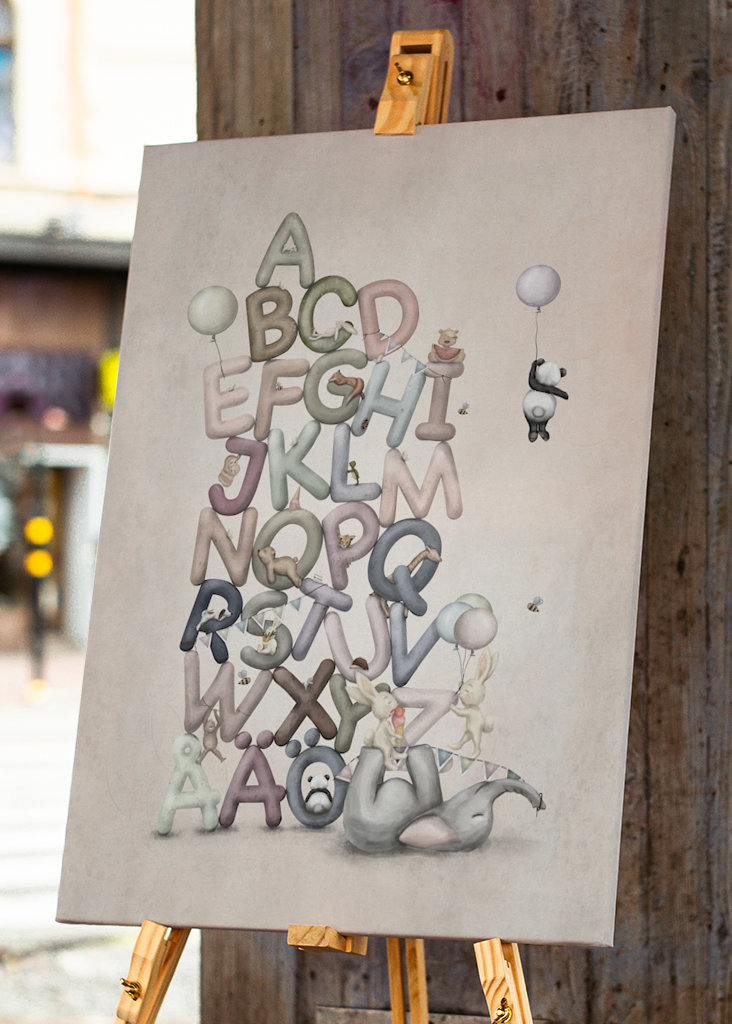 A
BCD
EFGHI
JKLM
NOPQ
RSTUV
WXYZ
ÅÄÖ